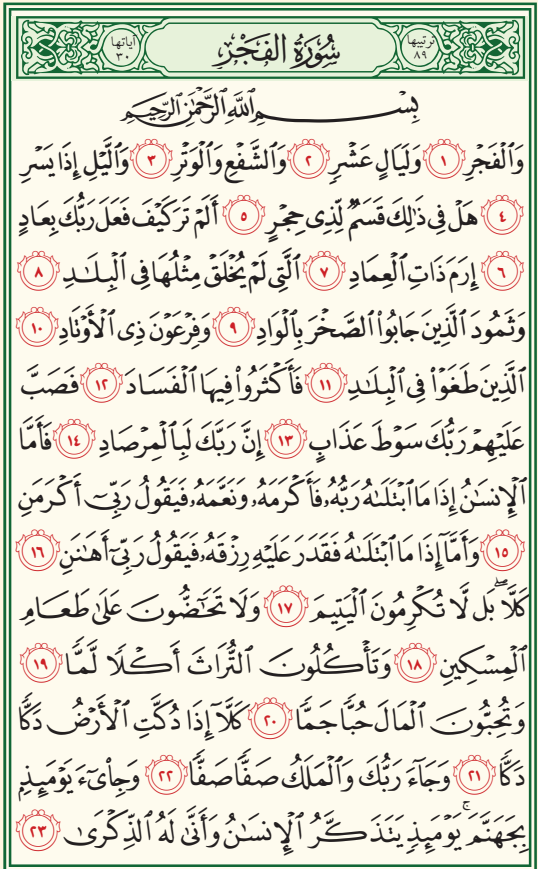 ترتيبها ٨٩ سُورَةُ الفَجْرِ آياتها ٣٠
بِسْمِ اللَّهِ الرَّحْمَٰنِ الرَّحِيمِ
وَٱلْفَجْرِ ١ وَلَيَالٍ عَشْرٍ ٢ وَٱلشَّفْعِ وَٱلْوَتْرِ ٣ وَٱلَّيْلِ إِذَا يَسْرِ
٤ هَلْ فِي ذَٰلِكَ قَسَمٌ لِّذِي حِجْرٍ ٥ أَلَمْ تَرَ كَيْفَ فَعَلَ رَبُّكَ بِعَادٍ
٦ إِرَمَ ذَاتِ ٱلْعِمَادِ ٧ ٱلَّتِي لَمْ يُخْلَقْ مِثْلُهَا فِي ٱلْبِلَٰدِ ٨
وَثَمُودَ ٱلَّذِينَ جَابُوا۟ ٱلصَّخْرَ بِٱلْوَادِ ٩ وَفِرْعَوْنَ ذِي ٱلْأَوْتَادِ ١٠
ٱلَّذِينَ طَغَوْا۟ فِي ٱلْبِلَٰدِ ١١ فَأَكْثَرُوا۟ فِيهَا ٱلْفَسَادَ ١٢ فَصَبَّ
عَلَيْهِمْ رَبُّكَ سَوْطَ عَذَابٍ ١٣ إِنَّ رَبَّكَ لَبِٱلْمِرْصَادِ ١٤ فَأَمَّا
ٱلْإِنسَٰنُ إِذَا مَا ٱبْتَلَىٰهُ رَبُّهُۥ فَأَكْرَمَهُۥ وَنَعَّمَهُۥ فَيَقُولُ رَبِّيٓ أَكْرَمَنِ
١٥ وَأَمَّآ إِذَا مَا ٱبْتَلَىٰهُ فَقَدَرَ عَلَيْهِ رِزْقَهُۥ فَيَقُولُ رَبِّيٓ أَهَٰنَنِ ١٦
كَلَّا ۖ بَل لَّا تُكْرِمُونَ ٱلْيَتِيمَ ١٧ وَلَا تَحَٰٓضُّونَ عَلَىٰ طَعَامِ
ٱلْمِسْكِينِ ١٨ وَتَأْكُلُونَ ٱلتُّرَاثَ أَكْلًا لَّمًّا ١٩
وَتُحِبُّونَ ٱلْمَالَ حُبًّا جَمًّا ٢٠ كَلَّآ إِذَا دُكَّتِ ٱلْأَرْضُ دَكًّا
دَكًّا ٢١ وَجَآءَ رَبُّكَ وَٱلْمَلَكُ صَفًّا صَفًّا ٢٢ وَجِا۟يٓءَ يَوْمَئِذٍۭ
بِجَهَنَّمَ ۚ يَوْمَئِذٍ يَتَذَكَّرُ ٱلْإِنسَٰنُ وَأَنَّىٰ لَهُ ٱلذِّكْرَىٰ ٢٣